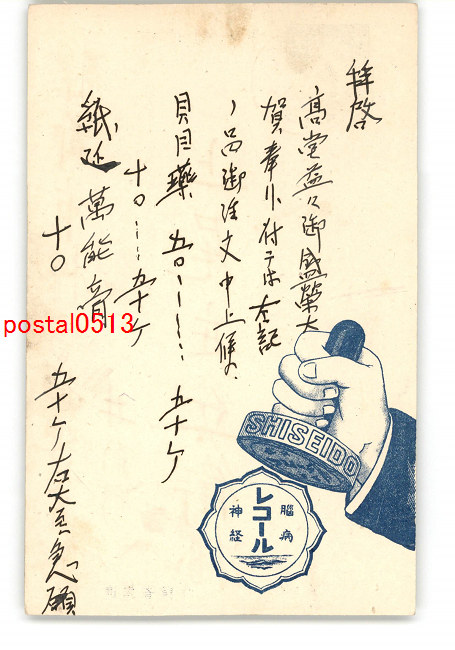 拝啓
高堂益々御盛栄大
賀奉り付ては左記
ノ品御注文申上候
貝目薬 五〇 五十ケ
四〇 五十ケ
紙延 萬能膏
十〇 五十ケ 右大至急願
postal0513
SHISEIDO
脳病
レコール
神経